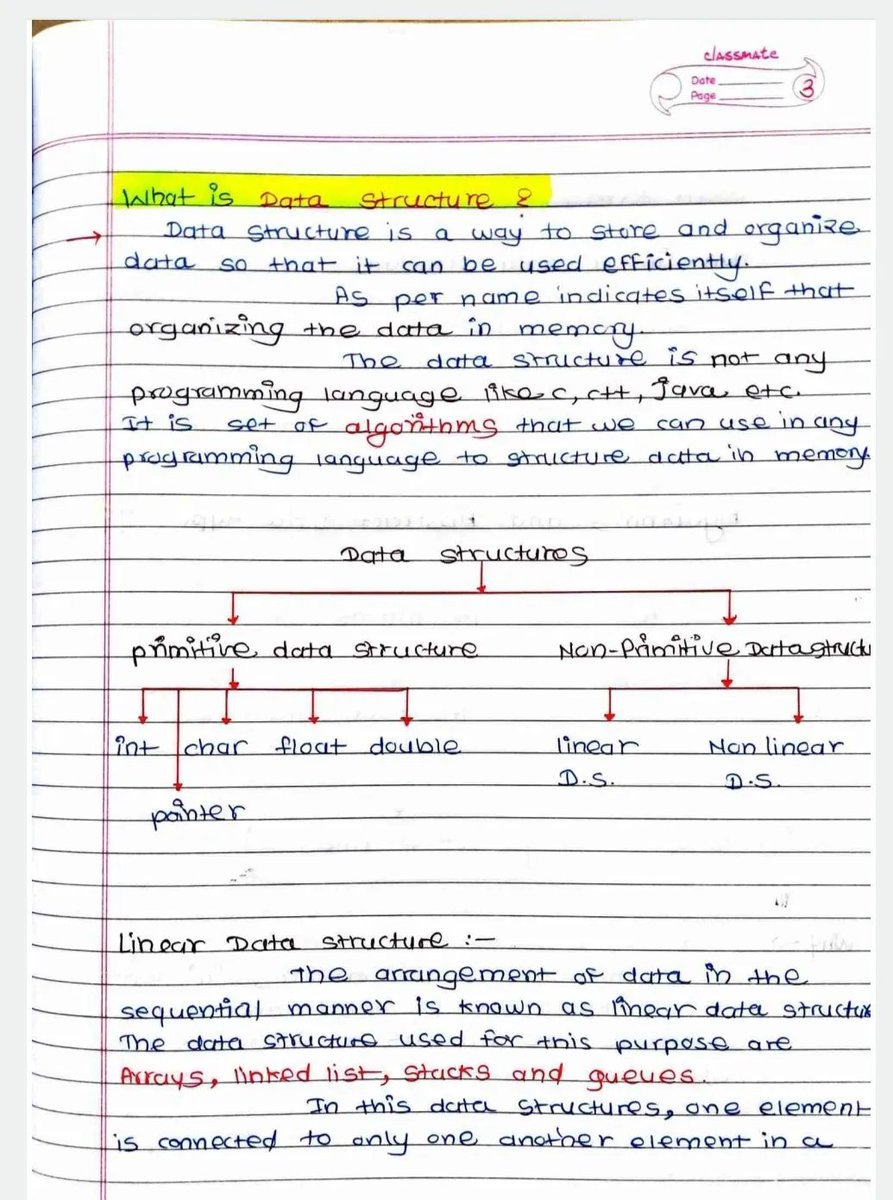 classmate
Date
Page 3
What is Data Structure ?
Data structure is a way to store and organize
data so that it can be used efficiently.
As per name indicates itself that
organizing the data in memory.
The data structure is not any
programming language like c, c++, java etc.
It is set of algorithms that we can use in any
programming language to structure data in memory
Data structures
primitive data structure Non-Primitive Datastructu
int char float double linear Non linear
D.S. D.S.
pointer
Linear Data structure :-
The arrangement of data in the
sequential manner is known as linear data structure
The data structure used for this purpose are
Arrays, linked list, stacks and queues.
In this data structures, one element
is connected to only one another element in a